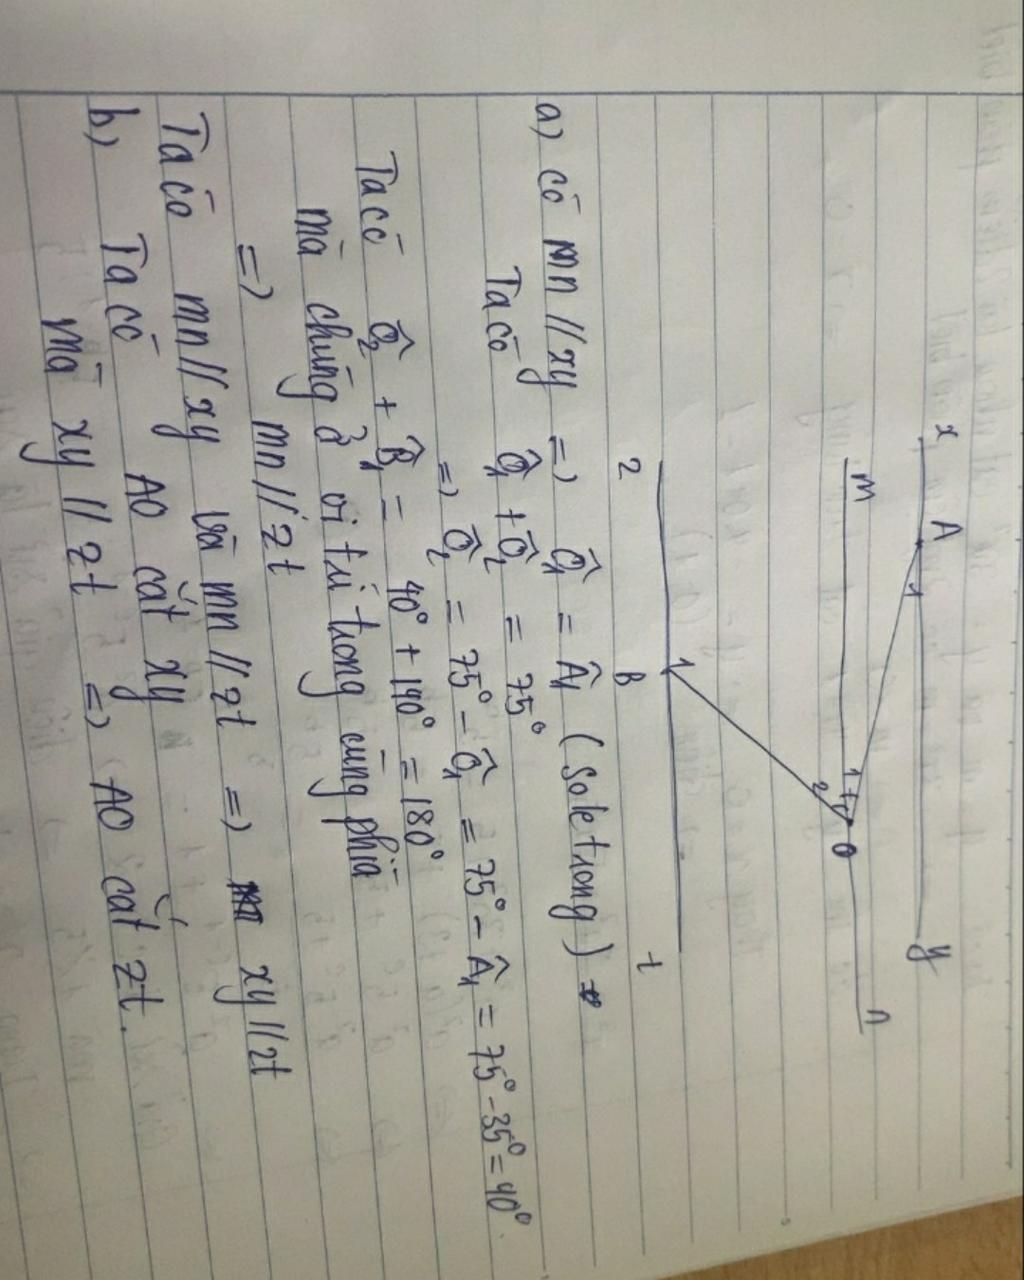 x A y
1
m 1 O n
2
1
z B t
a) có mn // xy => Ô1 = Â1 (sole trong)
Ta có Ô1 + Ô2 = 75°
=> Ô2 = 75° - Ô1 = 75° - Â1 = 75° - 35° = 40°.
Ta có Ô2 + B̂1 = 40° + 140° = 180°
mà chúng ở vị trí trong cùng phía
=> mn // zt
Ta có mn // xy và mn // zt => xy // zt
b) Ta có AO cắt xy
mà xy // zt => AO cắt zt.